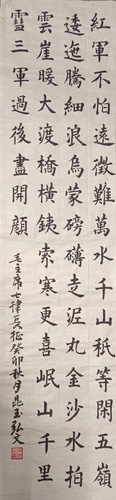 紅軍不怕遠徵難萬水千山秖等閑五嶺
逶迤騰細浪烏蒙磅礴走泥丸金沙水拍
雲崖暖大渡橋橫銕索寒更喜岷山千里
雪三軍過後盡開顏
毛主席七律長征癸卯秋月玉弘文